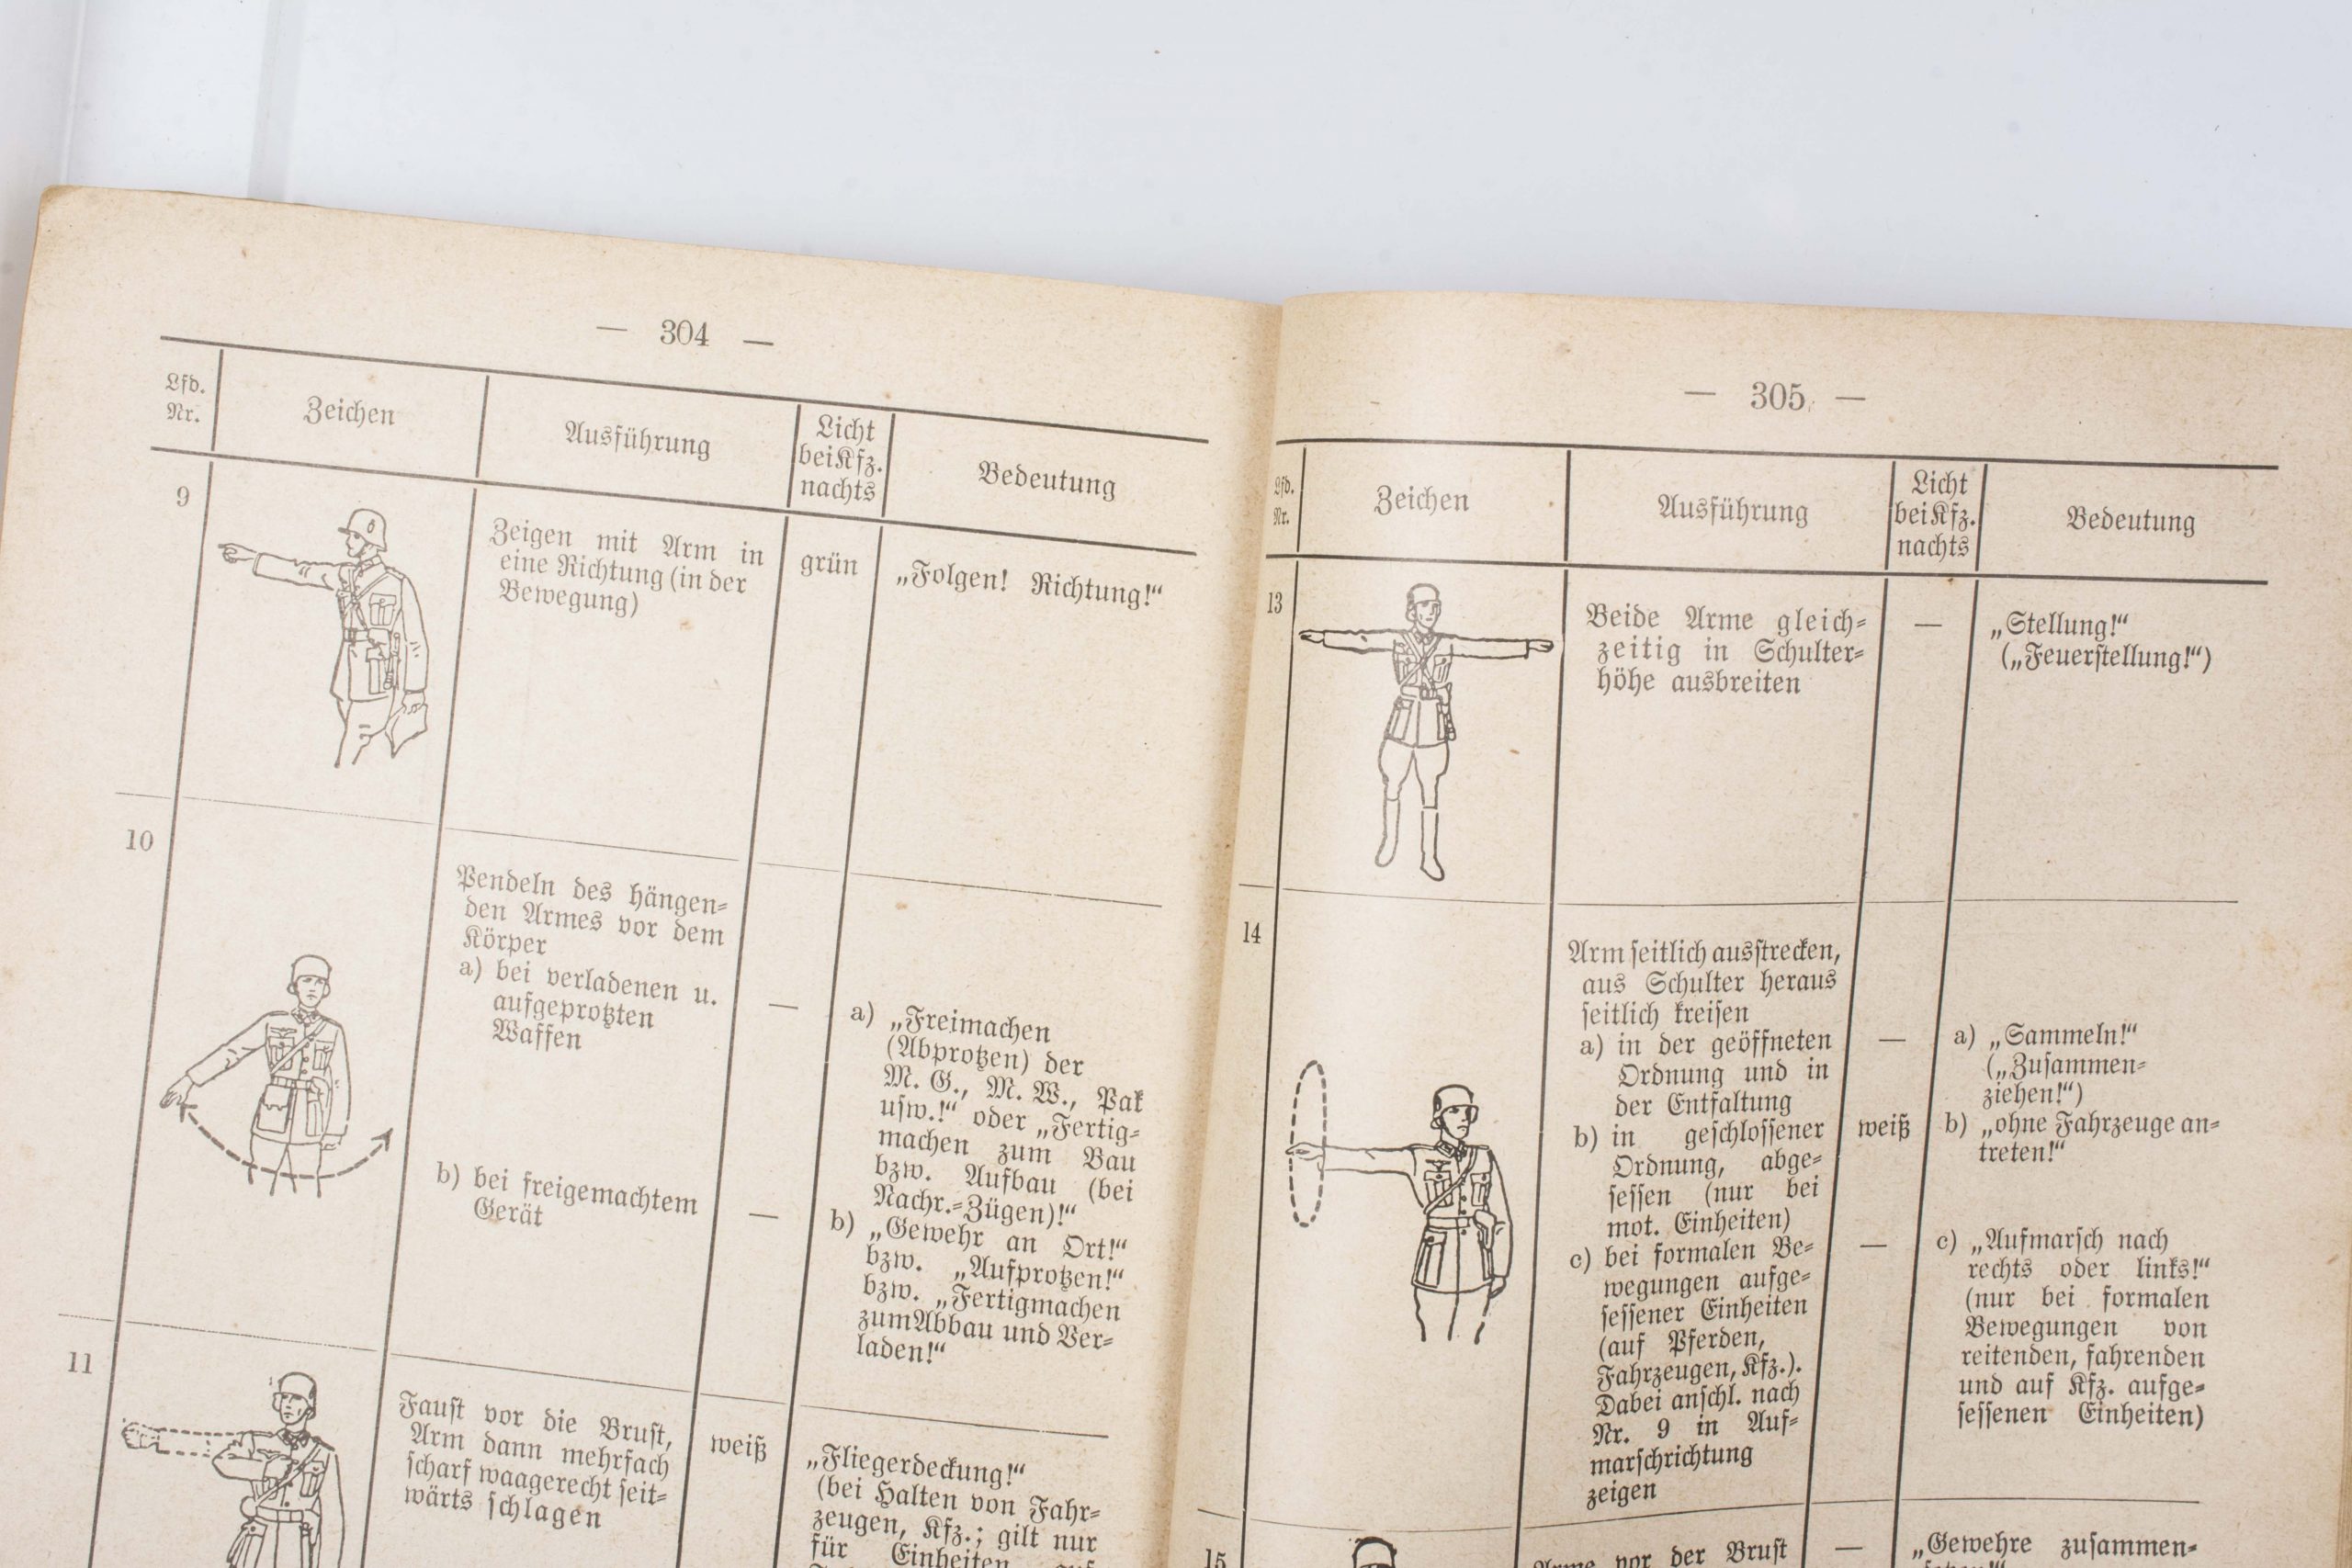 — 304 —
Lfd.
Nr.
Zeichen
Ausführung
Licht
bei Kfz.
nachts
Bedeutung
9
Zeigen mit Arm in
eine Richtung (in der
Bewegung)
grün
„Folgen! Richtung!“
10
Pendeln des hängen=
den Armes vor dem
Körper
a) bei verladenen u.
aufgeprotzten
Waffen
—
a) „Freimachen
(Abprotzen) der
M. G., M. W., Pak
usw.!“ oder „Fertig=
machen zum Bau
bzw. Aufbau (bei
Nachr.=Zügen)!“
b) bei freigemachtem
Gerät
—
b) „Gewehr an Ort!“
bzw. „Aufprotzen!“
bzw. „Fertigmachen
zum Abbau und Ver=
laden!“
11
Faust vor die Brust,
Arm dann mehrfach
scharf waagerecht seit=
wärts schlagen
weiß
„Fliegerdeckung!“
(bei Halten von Fahr=
zeugen, Kfz.; gilt nur
für Einheiten auf
— 305 —
Lfd.
Nr.
Zeichen
Ausführung
Licht
bei Kfz.
nachts
Bedeutung
13
Beide Arme gleich=
zeitig in Schulter=
höhe ausbreiten
—
„Stellung!“
(„Feuerstellung!“)
14
Arm seitlich ausstrecken,
aus Schulter heraus
seitlich kreisen
a) in der geöffneten
Ordnung und in
der Entfaltung
—
a) „Sammeln!“
(„Zusammen=
ziehen!“)
b) in geschlossener
Ordnung, abge=
sessen (nur bei
mot. Einheiten)
weiß
b) „ohne Fahrzeuge an=
treten!“
c) bei formalen Be=
wegungen aufge=
sessener Einheiten
(auf Pferden,
Fahrzeugen, Kfz.).
Dabei anschl. nach
Nr. 9 in Auf=
marschrichtung
zeigen
—
c) „Aufmarsch nach
rechts oder links!“
(nur bei formalen
Bewegungen von
reitenden, fahrenden
und auf Kfz. aufge=
sessenen Einheiten)
15
Arme vor der Brust
—
„Gewehre zusammen=